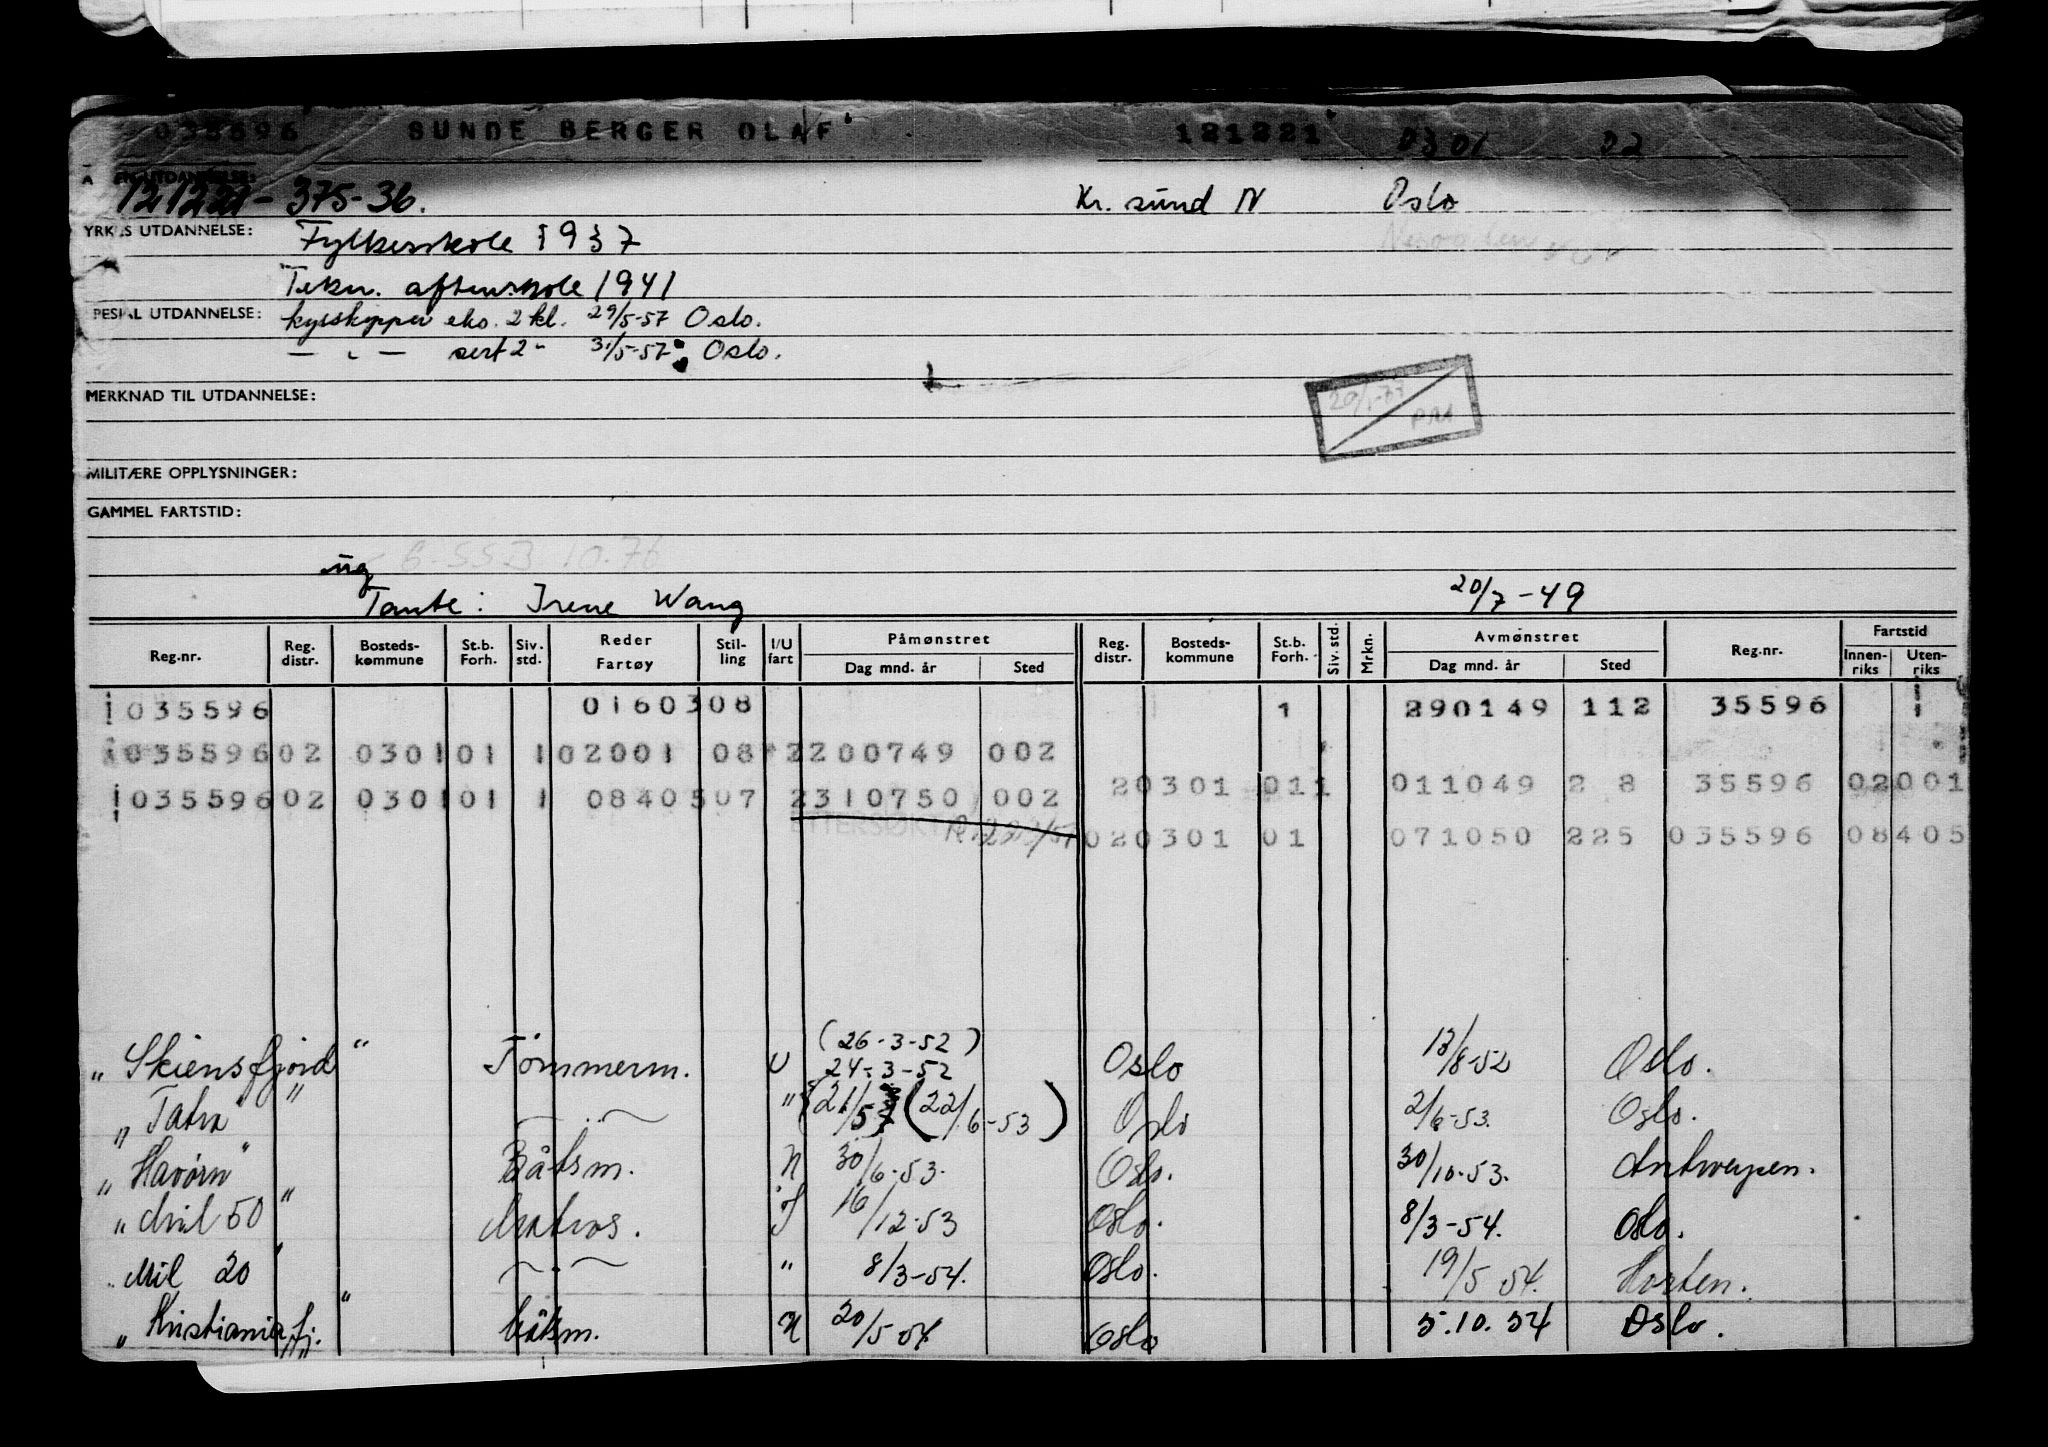 035596 SUNDE BERGER OLAF 121221 0301 02
UTDANNELSE:
121221-375-36. Kr. sund N Oslo
YRKES UTDANNELSE: Fylkesskole 1937
Tekn. aftenskole 1941
PESIAL UTDANNELSE: kysskipper eks. 2 kl. 29/5-57 Oslo.
— " — sert 2 - 31/5-57 Oslo.
MERKNAD TIL UTDANNELSE:
20/1-77
PM
MILITÆRE OPPLYSNINGER:
GAMMEL FARTSTID:
6-SSB 10.76
ug
Tante: Irene Wang 20/7-49
Reg.nr. Reg. distr. Bosteds-kommune St.b. Forh. Siv. std. Reder Fartøy Stil-ling I/U fart Påmønstret Dag mnd. år Sted Reg. distr. Bosteds-kommune St.b. Forh. Siv. std. Mrkn. Avmønstret Dag mnd. år Sted Reg.nr. Fartstid Innen-riks Uten-riks
035596 0160308 1 290149 112 35596
035596 02 0301 01 1 02001 08 2 200749 002
20301 011 011049 2 8 35596 02001
035596 02 0301 01 1 08405 07 2 310750 002
ETTERSØKT
020301 01 071050 225 035596 08405
"Skiensfjord" Tømmerm. U (26-3-52) 24-3-52 Oslo 18/8-52 Oslo.
"Tatra" — " — " 21/5 (22/6-53) Oslo 2/6-53. Oslo.
"Havørn" Båtsm. U 30/6-53. Oslo. 30/10-53. Antwerpen.
"Mil 50" Matros. I 16/12-53 Oslo. 8/3-54. Oslo.
"Mil 20" — " — " 8/3-54. Oslo. 19/5 54. Horten.
"Kristianiafj." Båtsm. U 20/5 54 Oslo 5.10.54 Oslo.